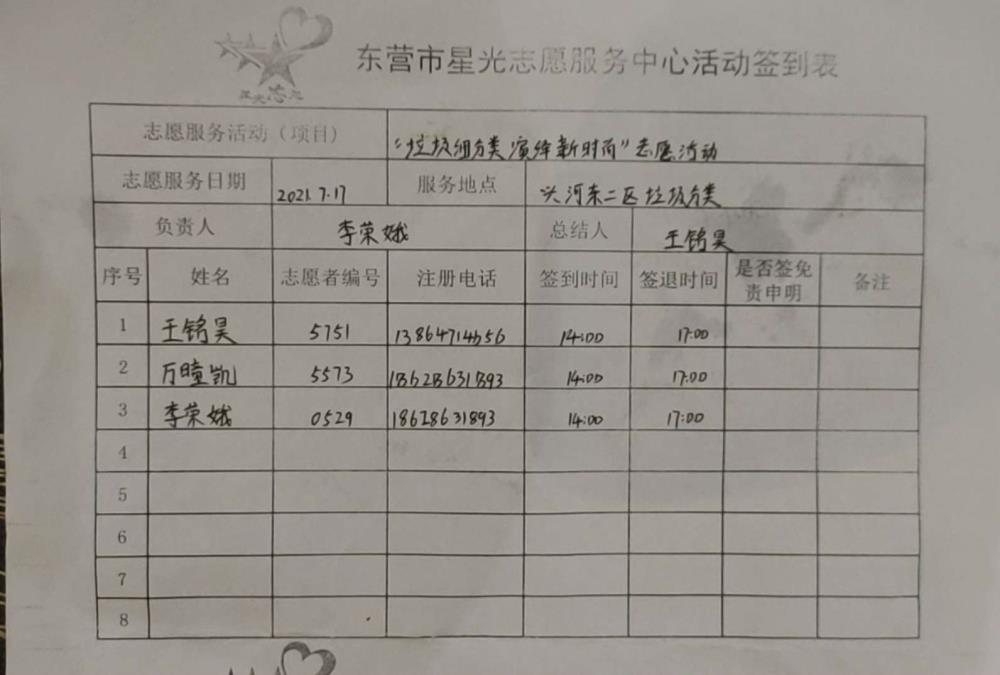 东营市星光志愿服务中心活动签到表
志愿服务活动（项目） “垃圾细分类 演绎新时尚”志愿活动
志愿服务日期 2021.7.17 服务地点 河东二区垃圾分类
负责人 李荣娥 总结人 王铭昊
序号 姓名 志愿者编号 注册电话 签到时间 签退时间 是否签免责申明 备注
1 王铭昊 5751 14:00 17:00
2 万曈凯 5573 18628631893 14:00 17:00
3 李荣娥 0529 18628631893 14:00 17:00
4
5
6
7
8